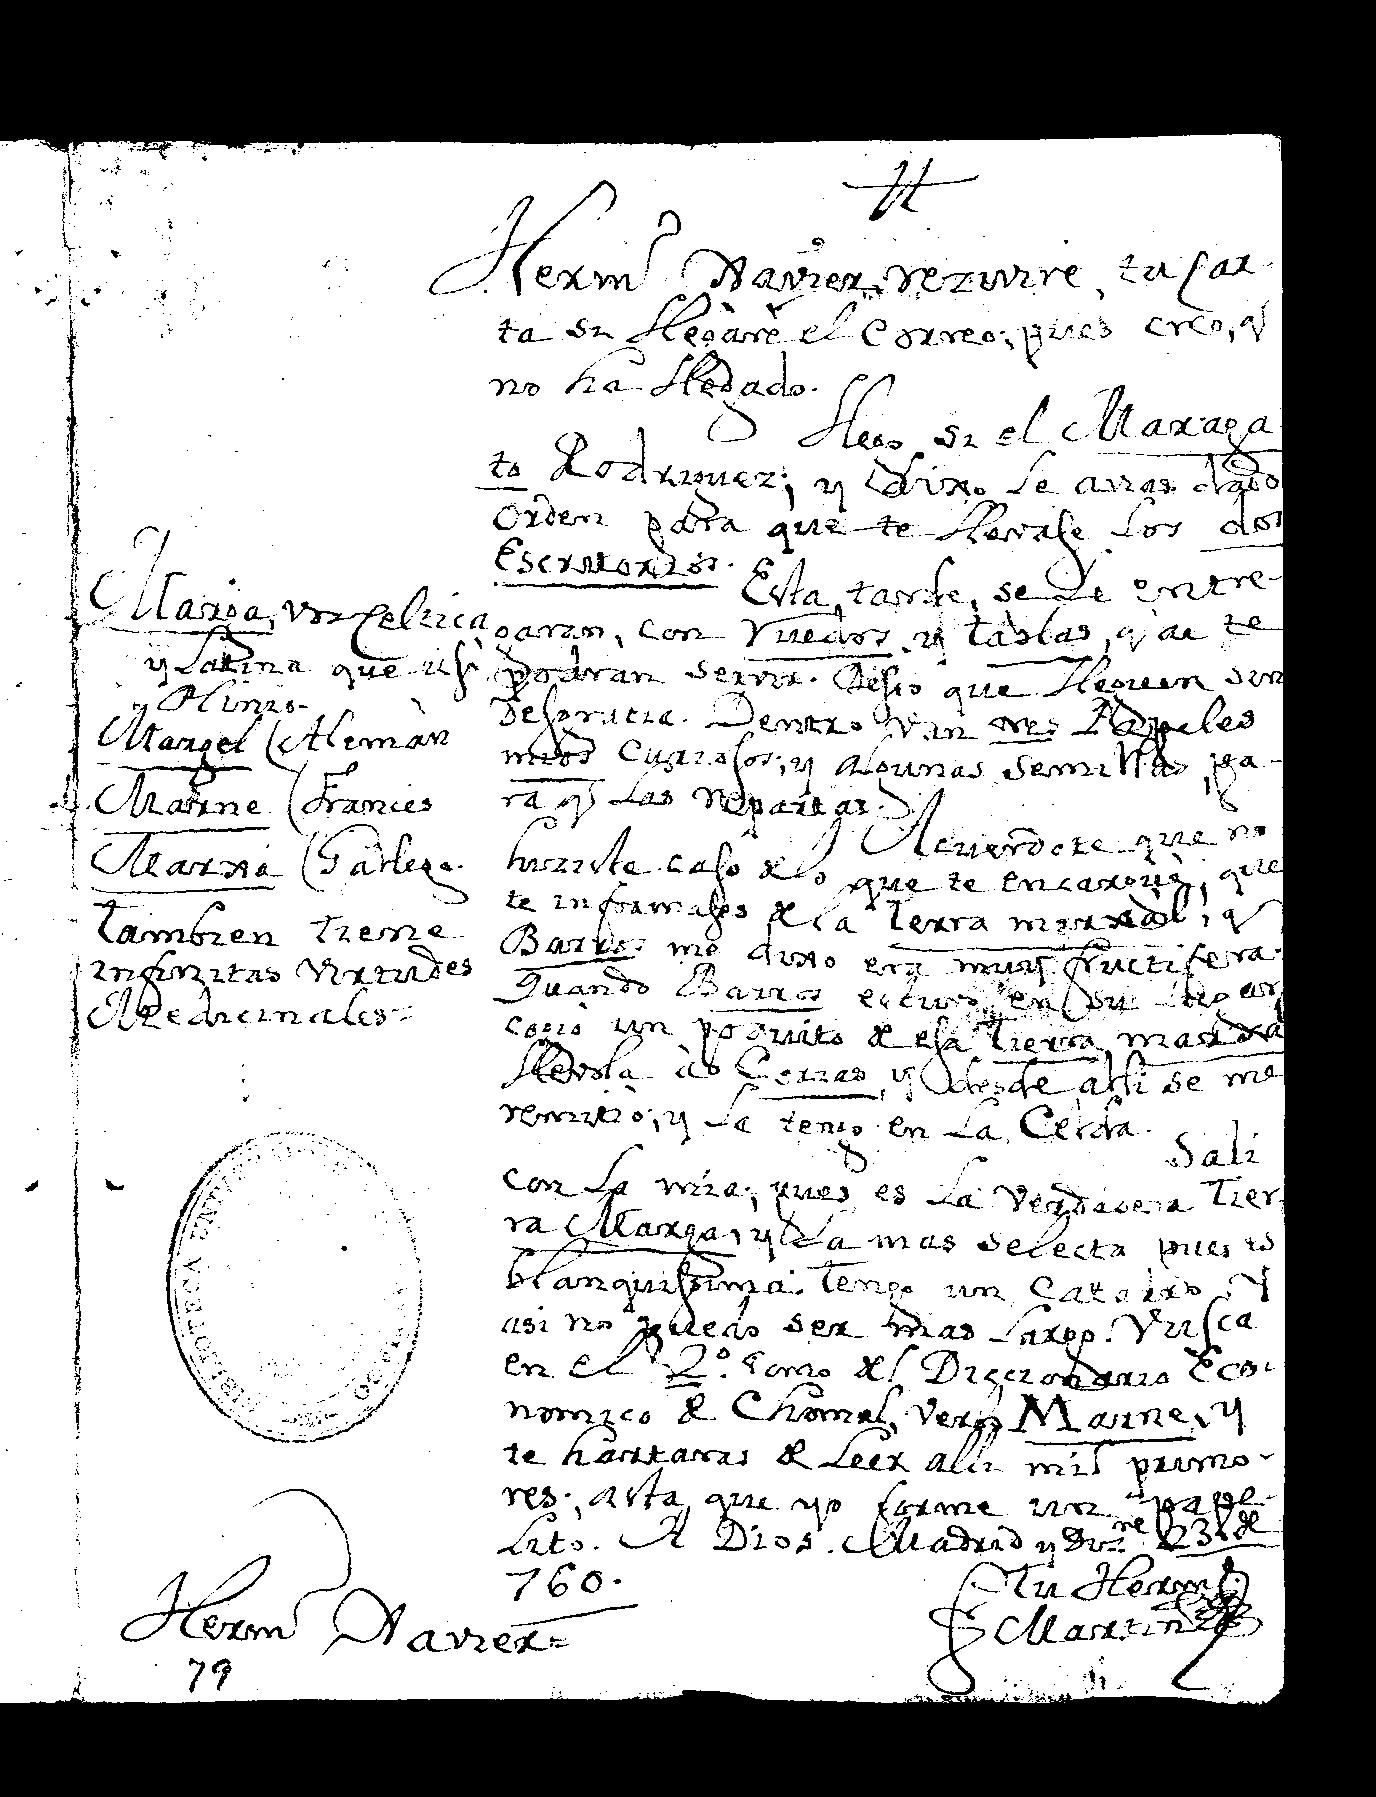 Hermº Xavier, rezivire tu Car
ta si llegàre el Correo; pues creo, q
no ha llegado.
Llegò si el Maraga
to Rodriguez; y dixo le avias dado
Orden para que te llevase los dos
Escritorios.
Esta tarde, se le entre
garàn, con Ruedos y tablas, q ai te
podran servir. Deseo que lleguen sin
desgracia. Dentro van tres Papeles
mios Curiosos; y algunas semillas, pa-
ra q las repartas.
Acuerdote que no
hiziste caso de lo que te encarguè, que
te informases de la Terra marxàl, q
Barros me dixo era muy fructifera.
Quando Barros estuvo en su lugar
cogiò un poquito de esa Tierra marxa
llevola às Cerzas, y desde alli se me
remitiò; y la tengo en la Celda.
Sali
con la mia; pues es la Verdadera Tier
ra Marga, y la mas selecta pues es
blanquissima. Tengo un Catarro y
asi no puedo ser mas largo. Busca
en el 2º. tomo del Diccionario Eco-
nomico de Chomel, verbo Marne, y
te hartaras de leer alli mis primo-
res; asta que yo forme un pape-
lito. A Dios. Madrid y 23 de
760.
Tu Hermº
Martin
Marga, voz Celtica
y Latina que usò
Plinio.
Margel (Alemàn
Marne (Francès
Marxa (Gallego.
Tambien tiene
infinitas Virtudes
Medicinales=
BIBLIOTECA UNIVERSITARIA SANTIAGO
Hermº Xavier=
79